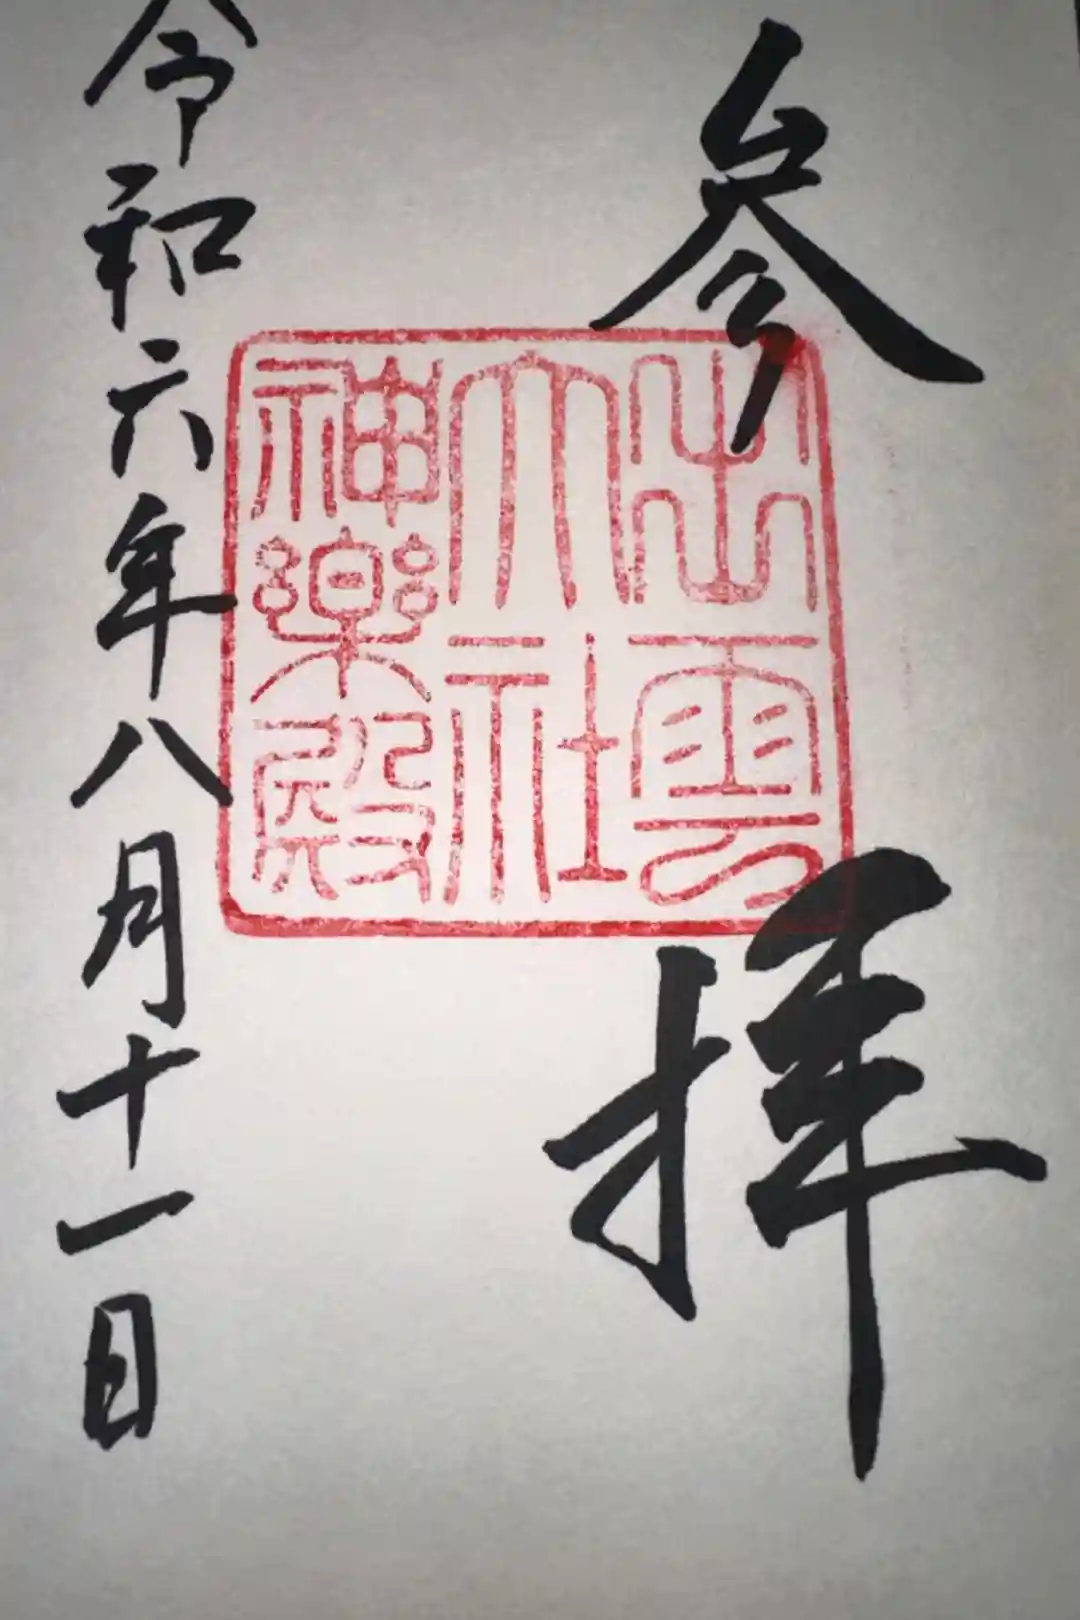 参拝
出雲
大社
神楽殿
令和六年八月十一日